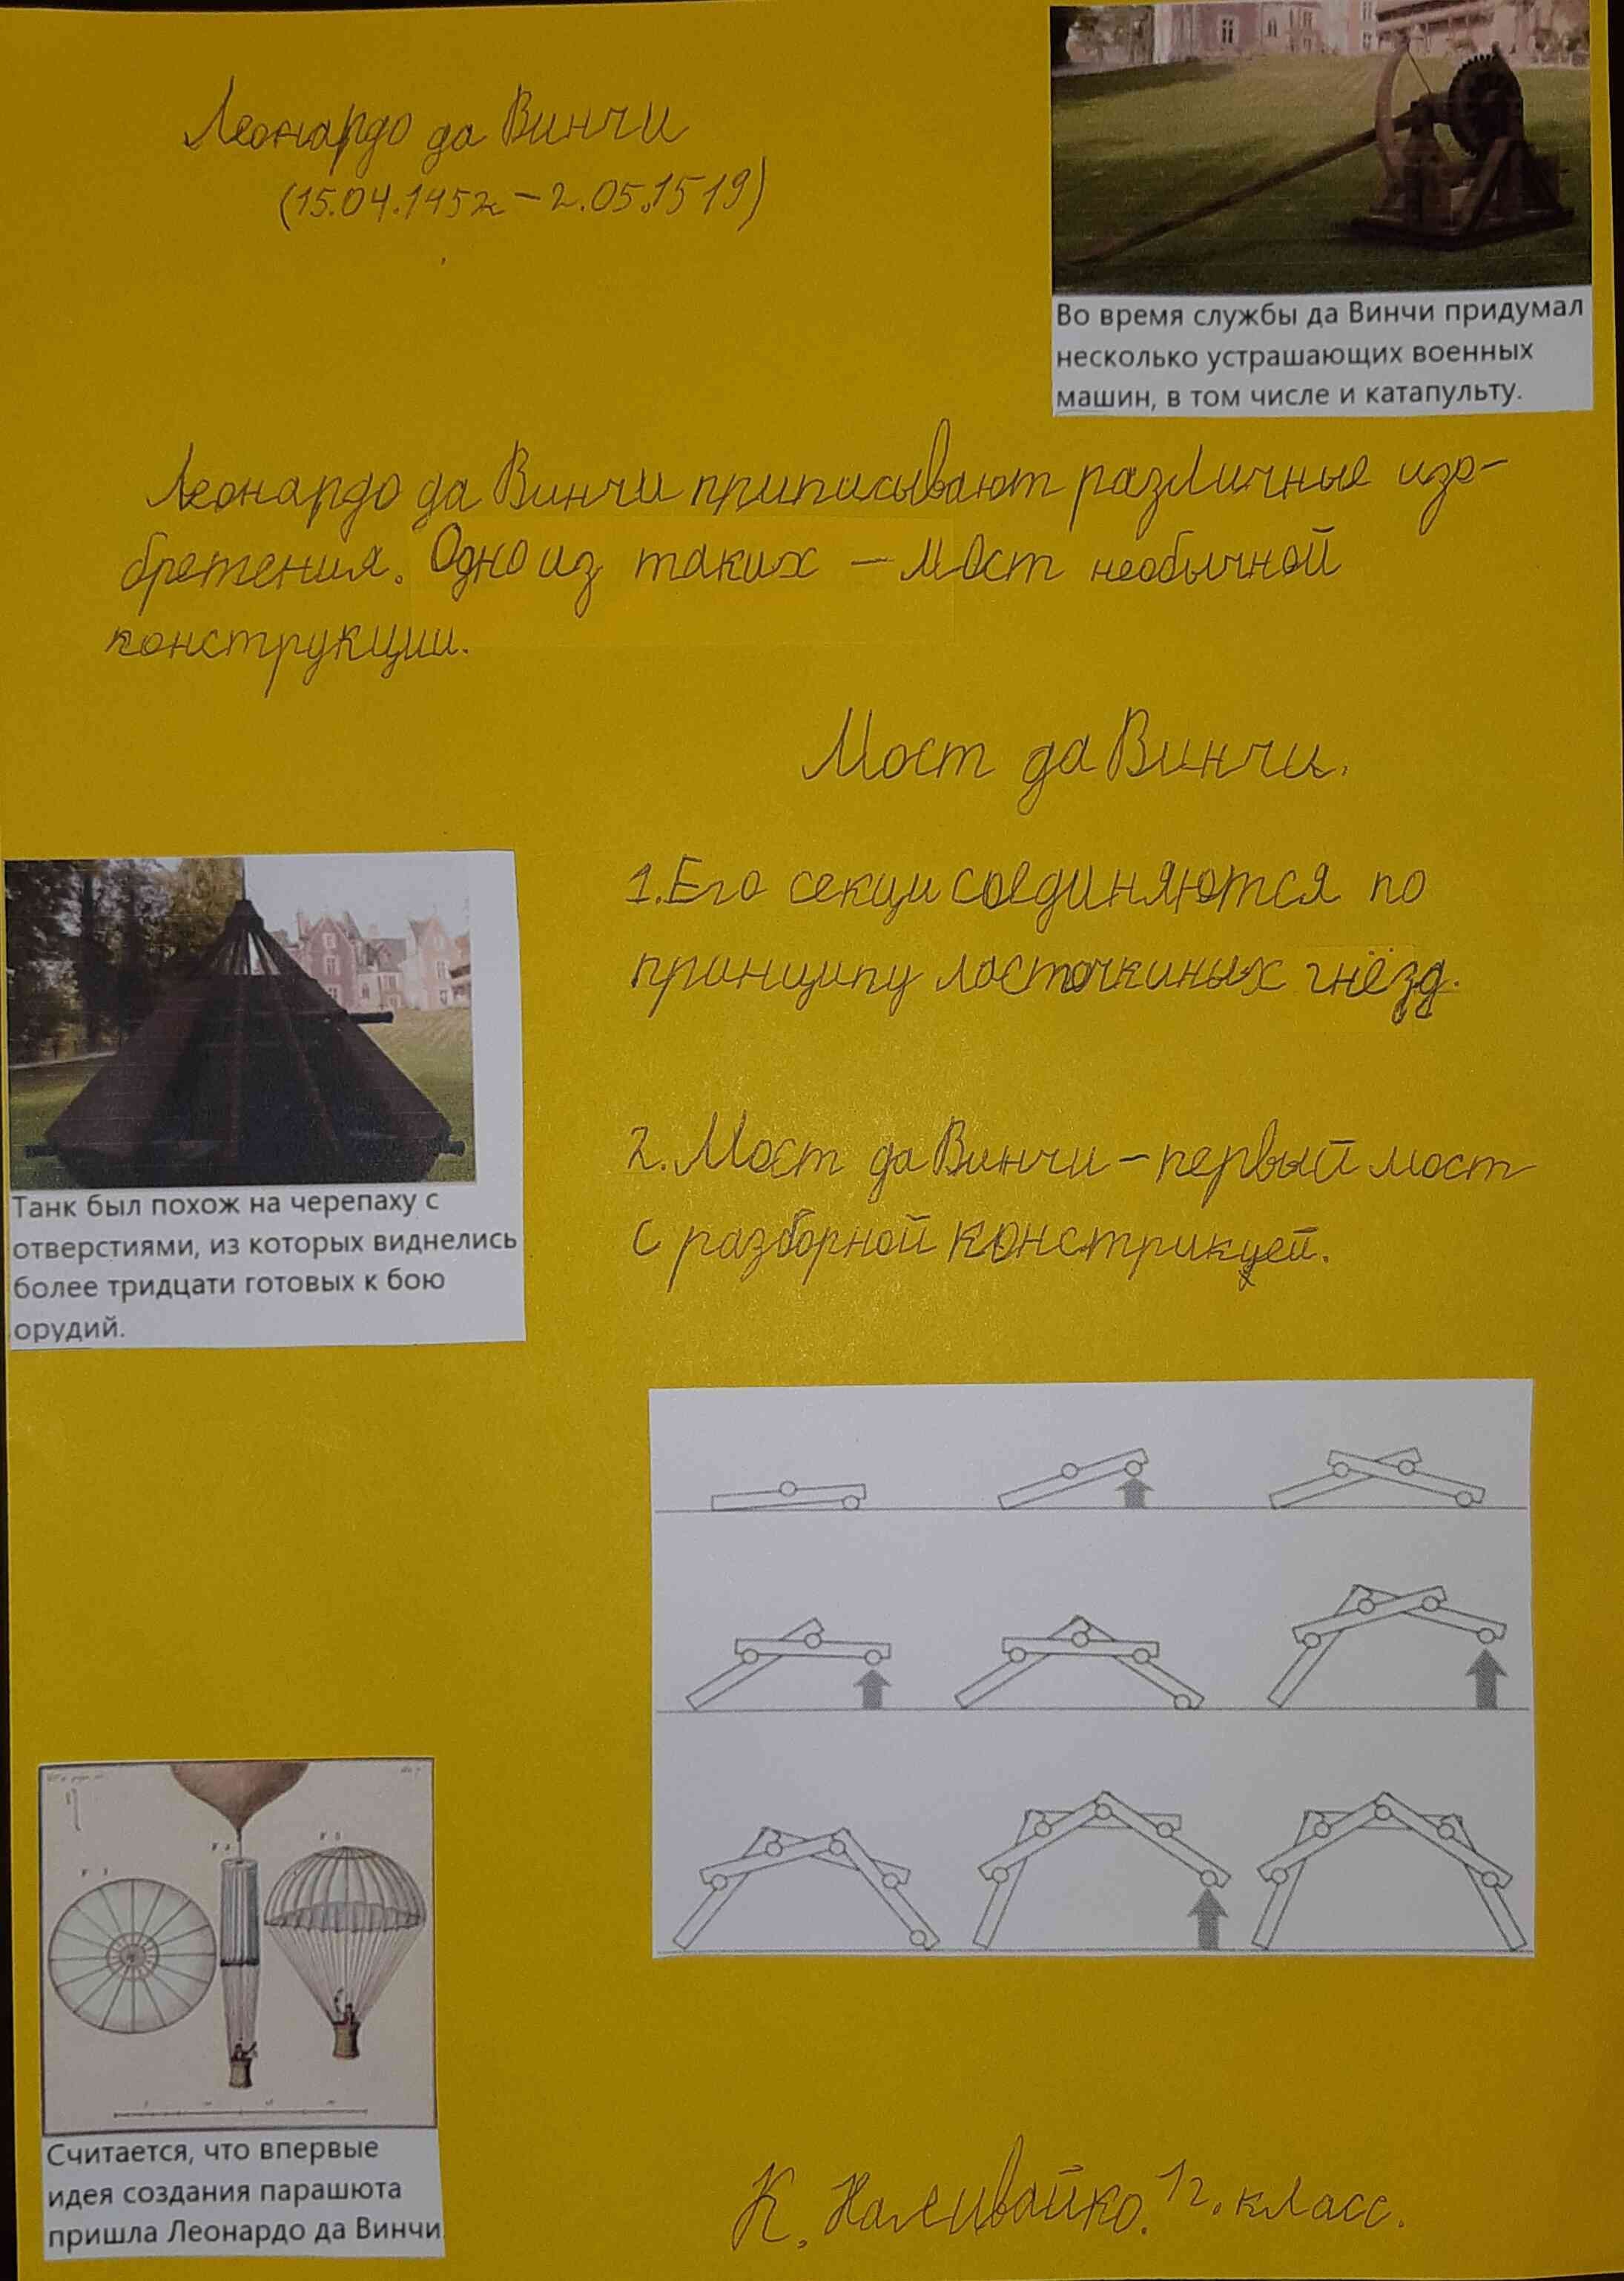 Леонардо да Винчи
(15.04.1452г – 2.05.1519)
Во время службы да Винчи придумал
несколько устрашающих военных
машин, в том числе и катапульту.
Леонардо да Винчи приписывают различные изо-
бретения. Одно из таких – мост необычной
конструкции.
Мост да Винчи.
1. Его секци соединяются по
принципу ласточкиных гнёзд.
Танк был похож на черепаху с
отверстиями, из которых виднелись
более тридцати готовых к бою
орудий.
2. Мост да Винчи – первый мост
с разборной констрикцей.
Считается, что впервые
идея создания парашюта
пришла Леонардо да Винчи
К. Наливайко. 1г. класс.